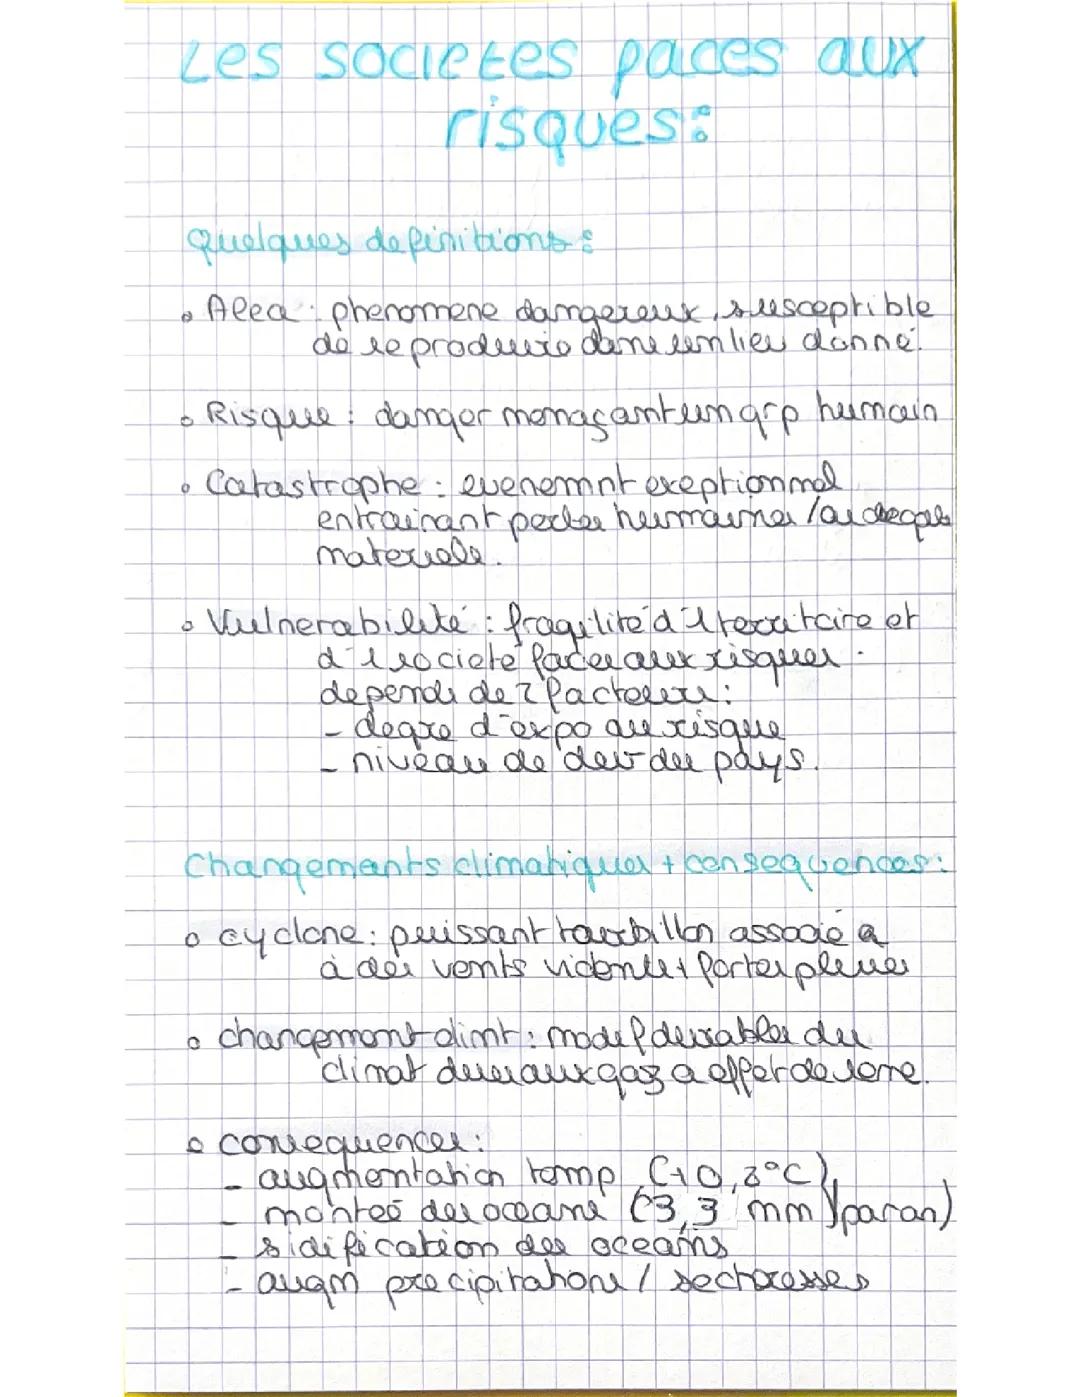 Les societes faces aux
risques :
Quelques definitions :
Alea : phenomene dangereux, susceptible
de se produire dans un lieu donné.
Risque : danger menaçant un grp humain
Catastrophe : evenemnt exeptionnel
entrainant pertes humaines / ou degats
materiels.
Vulnerabilité : fragilité d'1 territoire et
d'1 societé faces aux risques.
depends de 2 facteurs :
- degre d'expo au risque
- niveau de dev du pays.
Changements climatiques + consequences :
cyclone : puissant tourbillon associé a
à des vents violents + fortes pluies
changement climt : modif durables du
climat dues aux gaz a effet de serre.
consequences :
- augmentation temp (+0,8°C)
- monteé des oceans (3,3 mm par an)
- sidification des oceans
- augm precipitations / secheresses